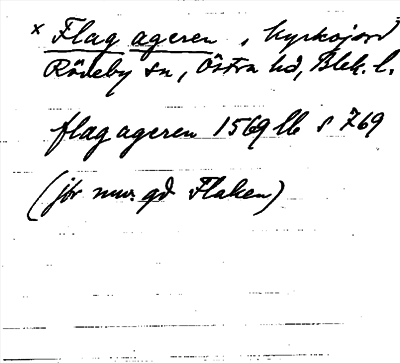 x Flag ageren, kyrkojord
Rödeby sn, Östra hd, Blek. l.
flag ageren 1569 lb s 769
(jfr nuv. gd Flaken)